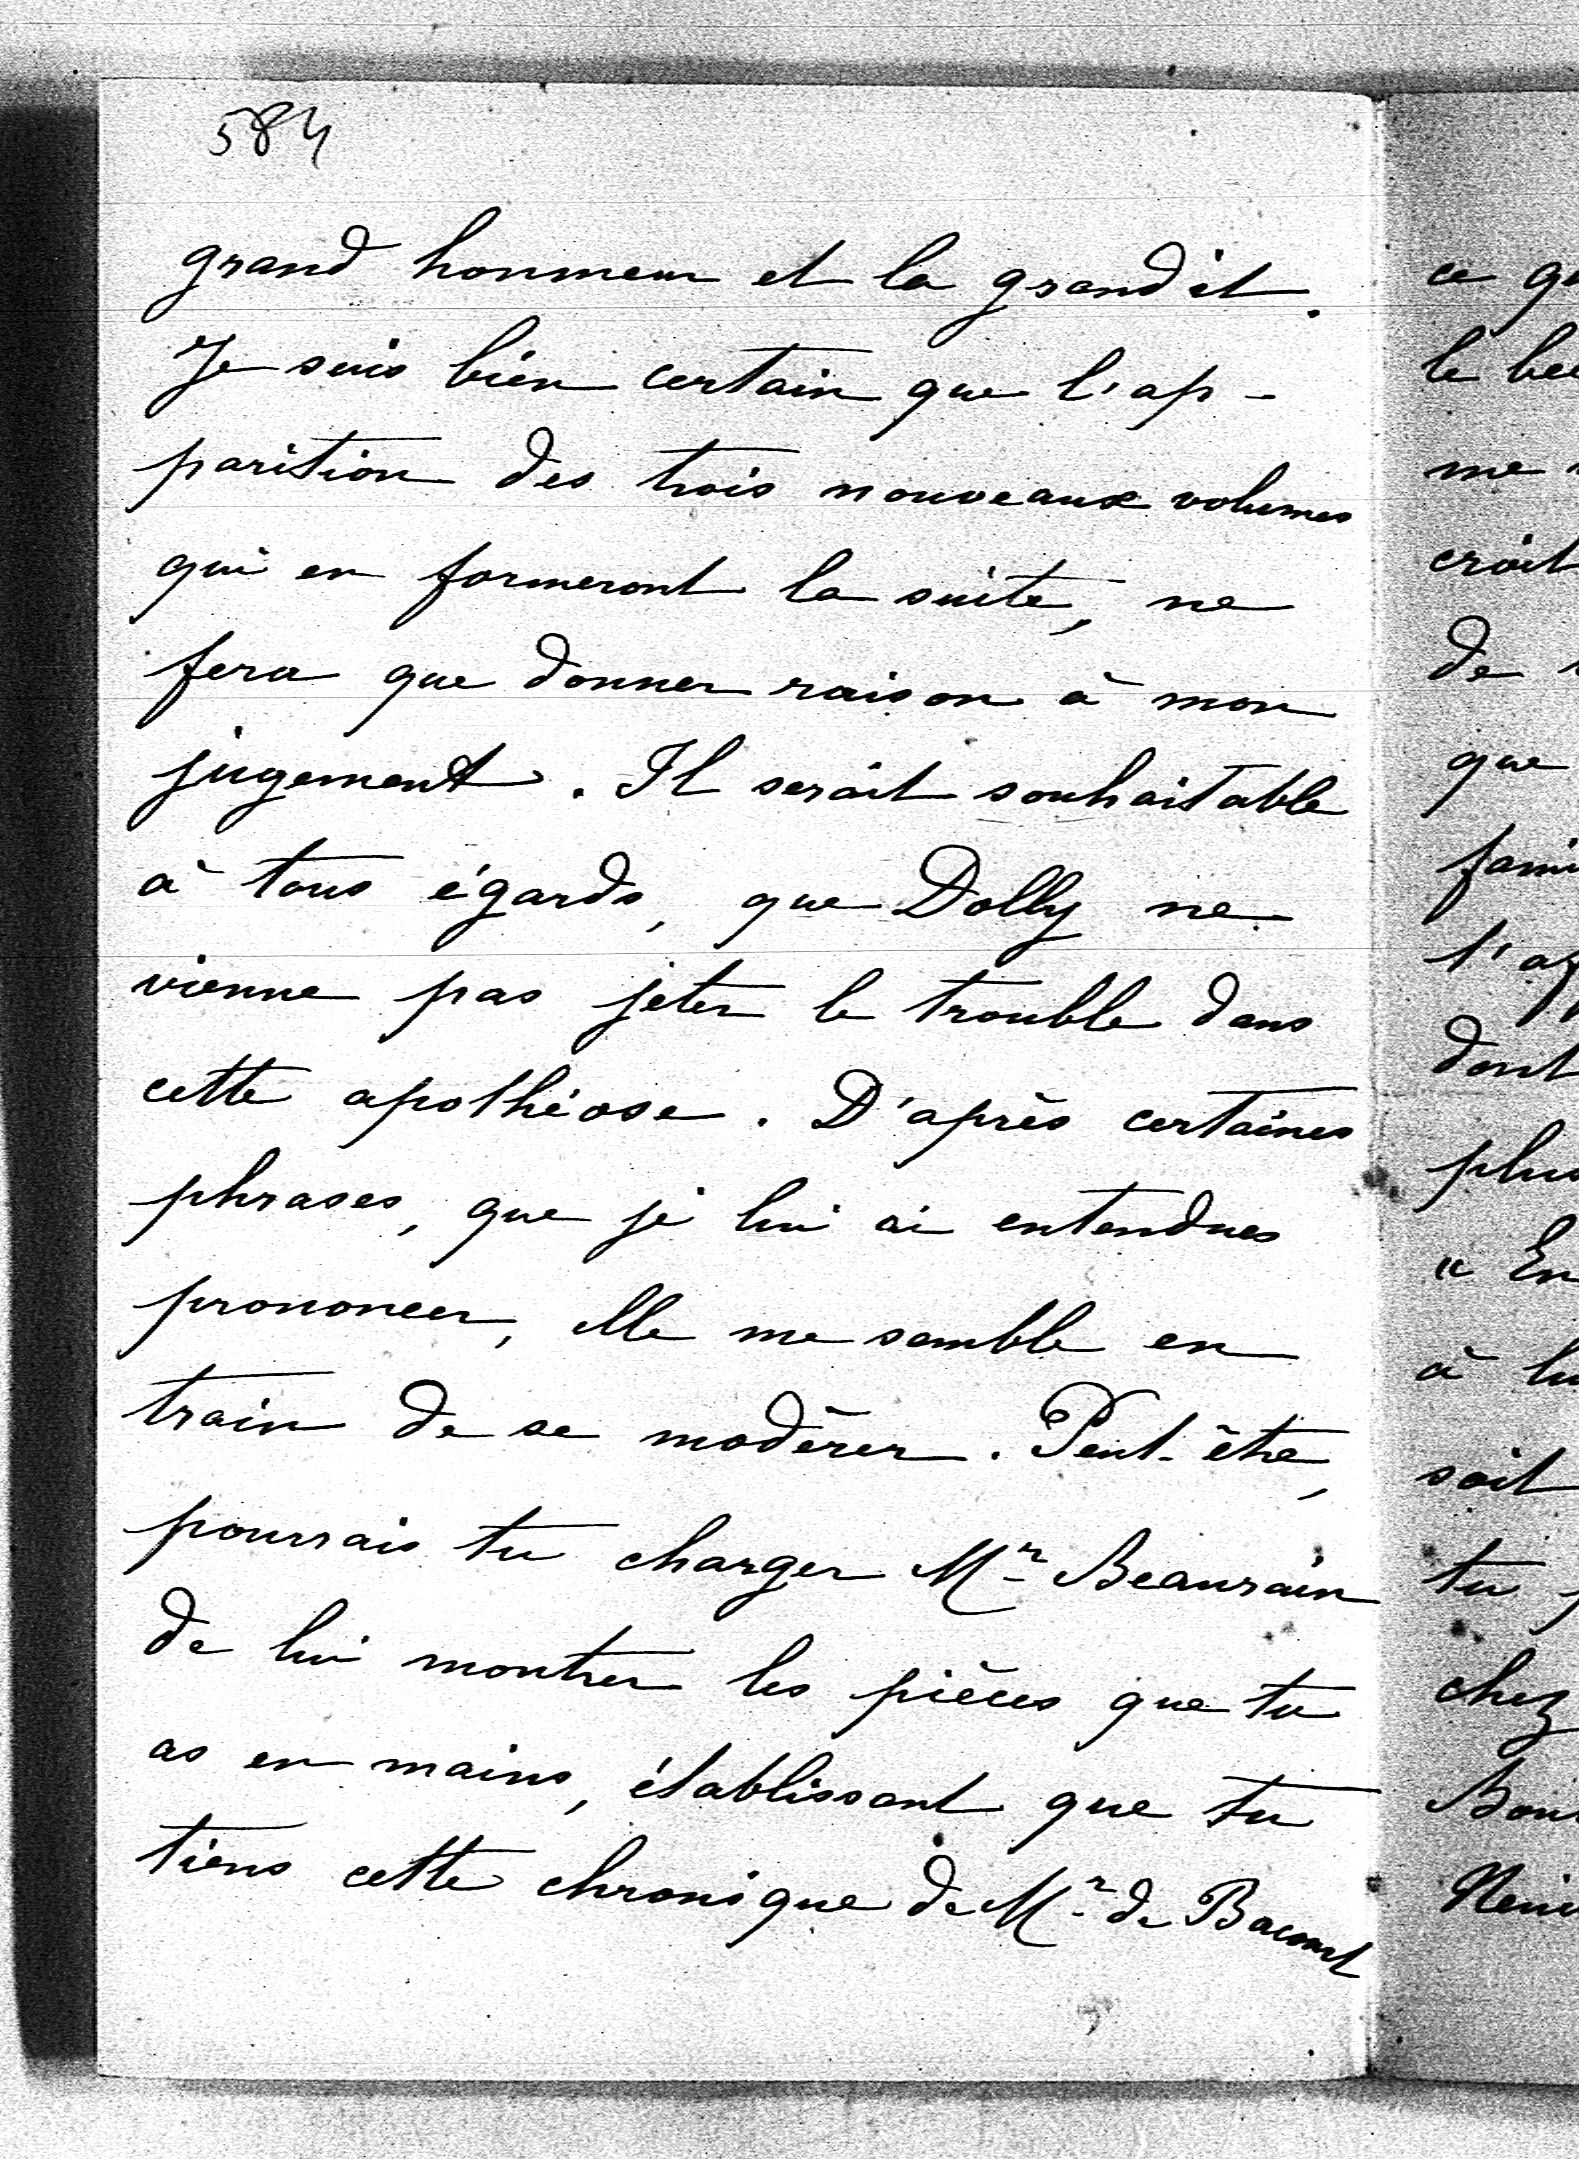 584
grand honneur et la grandit.
Je suis bien certain que l'ap-
parition des trois nouveaux volumes
qui en formeront la suite, ne
fera que donner raison à mon
jugement. Il serait souhaitable
à tous égards, que Dolly ne
vienne pas jeter le trouble dans
cette apothéose. D'après certaines
phrases, que je lui ai entendues
prononcer, elle me semble en
train de se modérer. Peut-être,
pourrais tu charger Mr Beaurain
de lui montrer les pièces que tu
as en mains, établissant que tu
tiens cette chronique de Mr de Bacourt
ce
le
me
croit
de
que
dont
plus
« En
à
soit
tu
chez